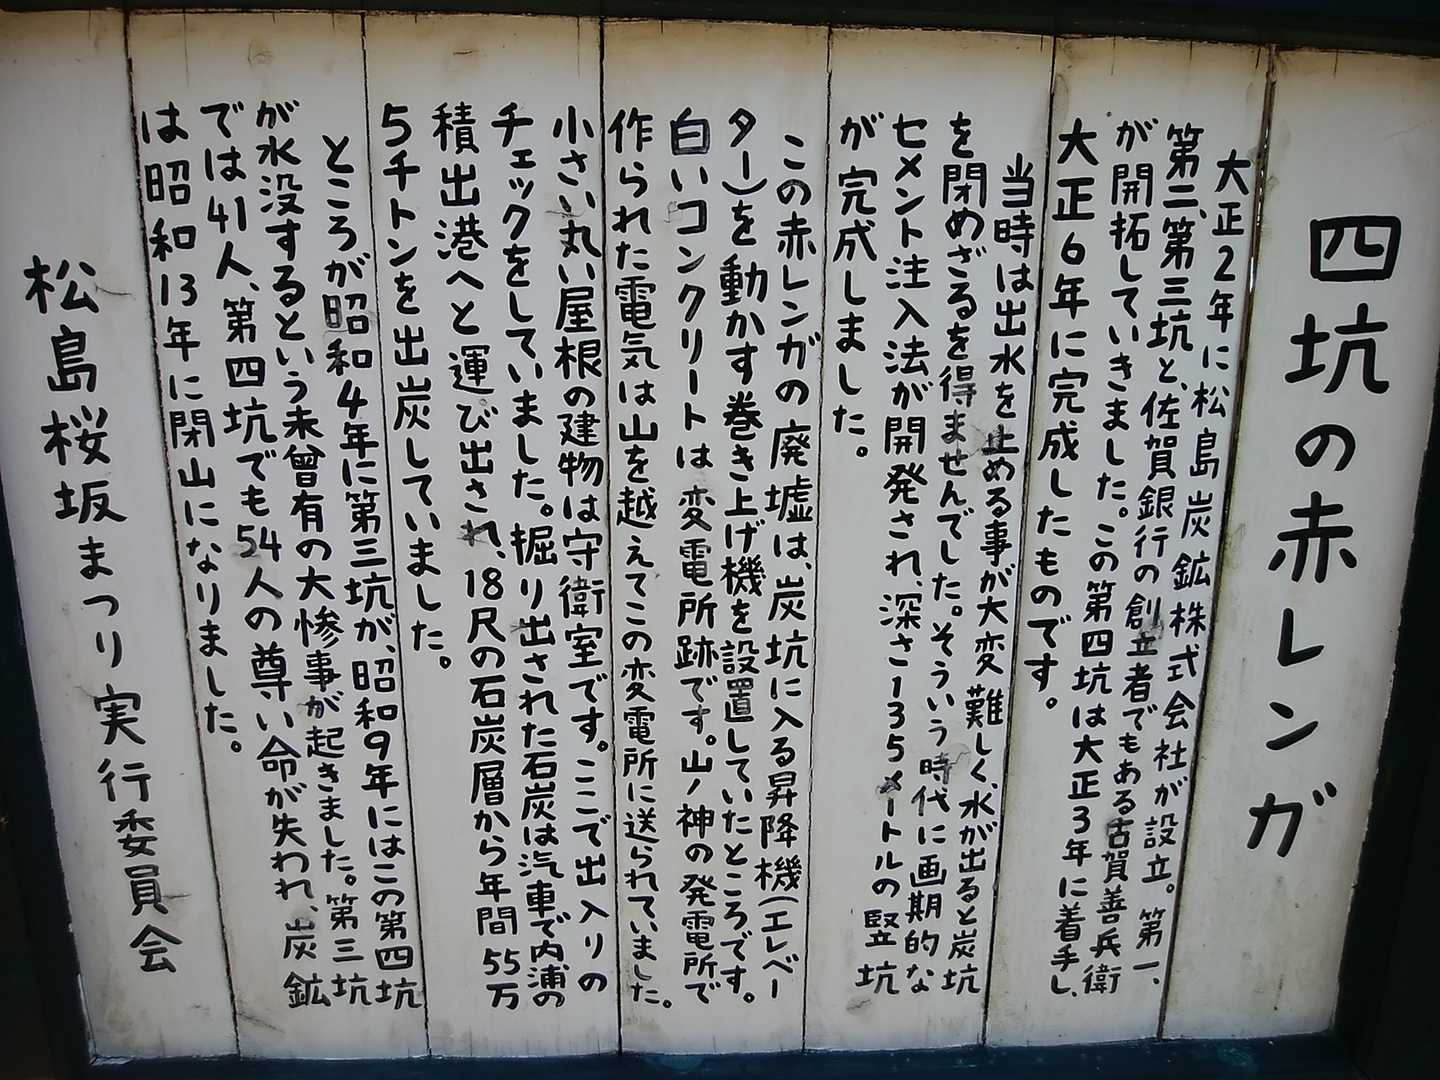 四坑の赤レンガ
大正2年に松島炭鉱株式会社が設立。第一、
第二、第三坑と、佐賀銀行の創立者でもある古賀善兵衛
が開拓していきました。この第四坑は大正3年に着手し、
大正6年に完成したものです。
当時は出水を止める事が大変難しく、水が出ると炭坑
を閉めざるを得ませんでした。そういう時代に画期的な
セメント注入法が開発され、深さ135メートルの竪坑
が完成しました。
この赤レンガの廃墟は、炭坑に入る昇降機(エレベー
ター)を動かす巻き上げ機を設置していたところです。
白いコンクリートは変電所跡です。山ノ神の発電所で
作られた電気は山を越えてこの変電所に送られていました。
小さい丸い屋根の建物は守衛室です。ここで出入りの
チェックをしていました。掘り出された石炭は汽車で内浦の
積出港へと運び出され、18尺の石炭層から年間55万
5千トンを出炭していました。
ところが昭和4年に第三坑が、昭和9年にはこの第四坑
が水没するという未曾有の大惨事が起きました。第三坑
では41人、第四坑でも54人の尊い命が失われ、炭鉱
は昭和13年に閉山になりました。
松島桜坂まつり実行委員会